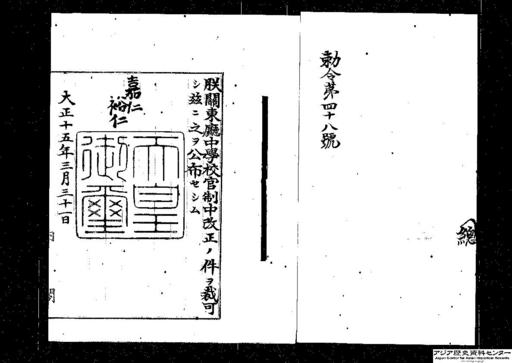 勅令第四十八號
朕關東廳中學校官制中改正ノ件ヲ裁可
シ茲ニ之ヲ公布セシム
嘉仁
裕仁
天皇御璽
大正十五年三月三十一日
内閣
アジア歴史資料センター
Japan Center for Asian Historical Records